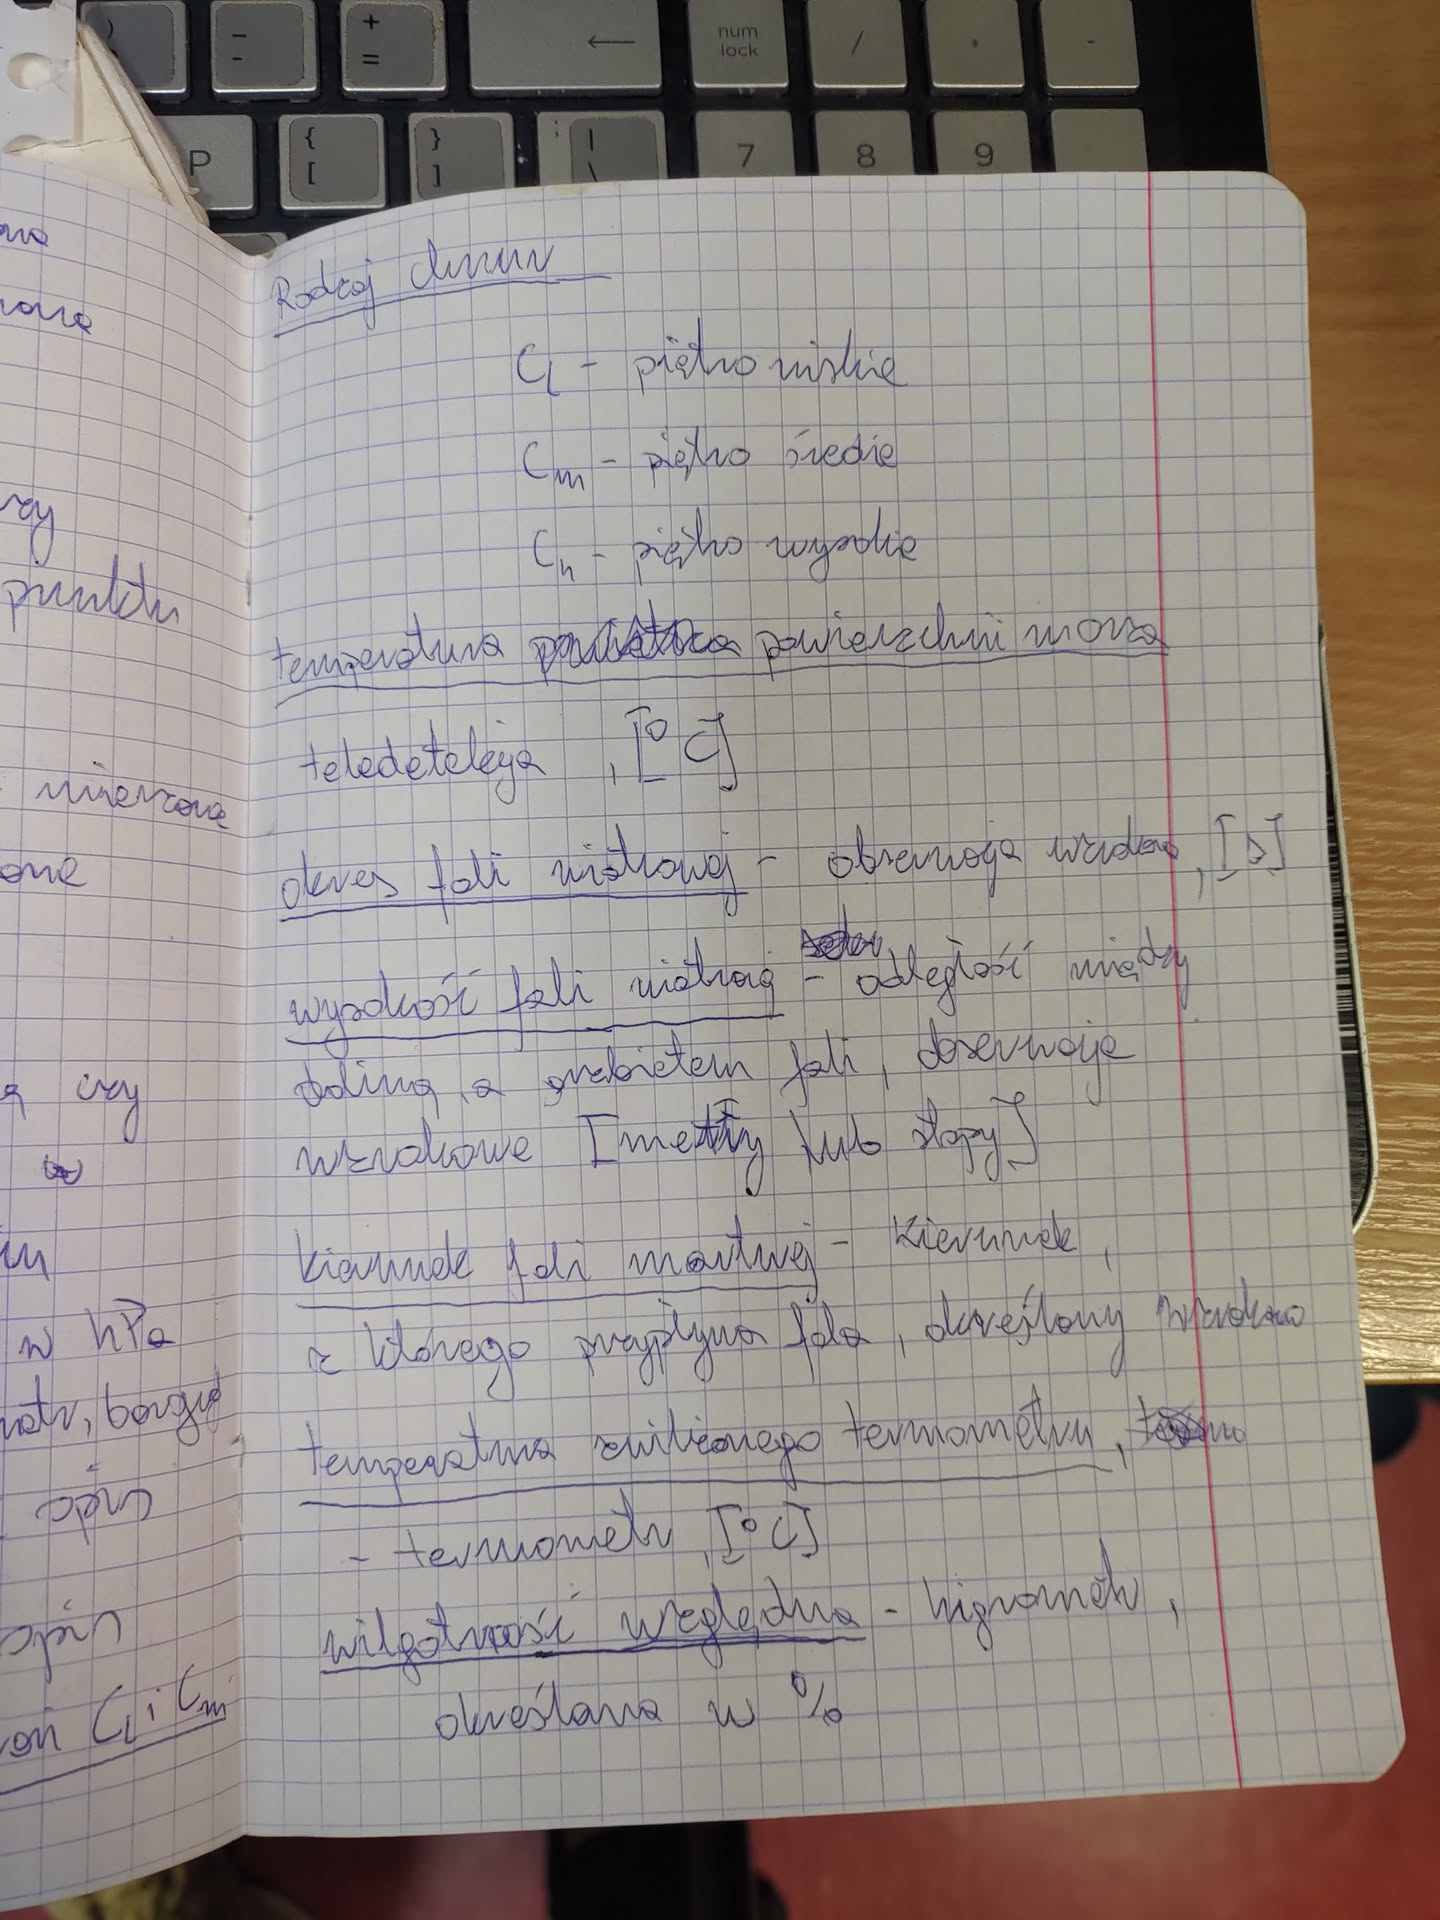 -
-
+
=
←
num
lock
/
*
-
P
{
[
}
]
|
\
7
8
9
punktu
w hPa
C_L i C_m
Rodzaj chmur
C_L - piętro niskie
C_m - piętro średie
C_h - piętro wysokie
temperatura powierzchni morza
teledetekcja , [°C]
okres fali wiatrowej - obserwacja wzrokowa, [s]
wysokość fali wiatrowej - odległość między
doliną, a grzbietem fali, obserwacje
wzrokowe [metry lub stopy]
Kierunek fali martwej - Kierunek,
z którego przypływa fala, określony wzrokowo
temperatura zwilżonego termometru,
- termometr, [°C]
wilgotność względna - higrometr,
określana w %